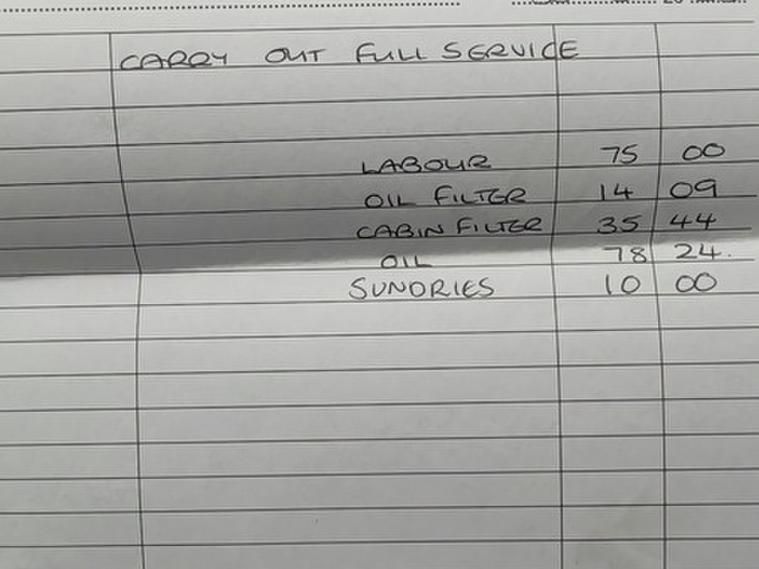 CARRY OUT FULL SERVICE
LABOUR 75 00
OIL FILTER 14 09
CABIN FILTER 35 44
OIL 78 24.
SUNDRIES 10 00